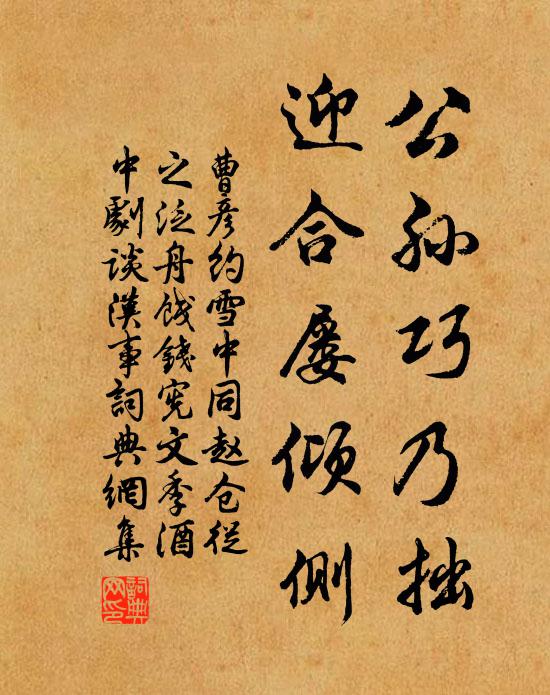 公孙巧乃拙
迎合屡倾侧
曹彦约雪中同赵仓従
之泛舟饯钱宪文季酒
中剧谈汉事词典網集
詞典
网印